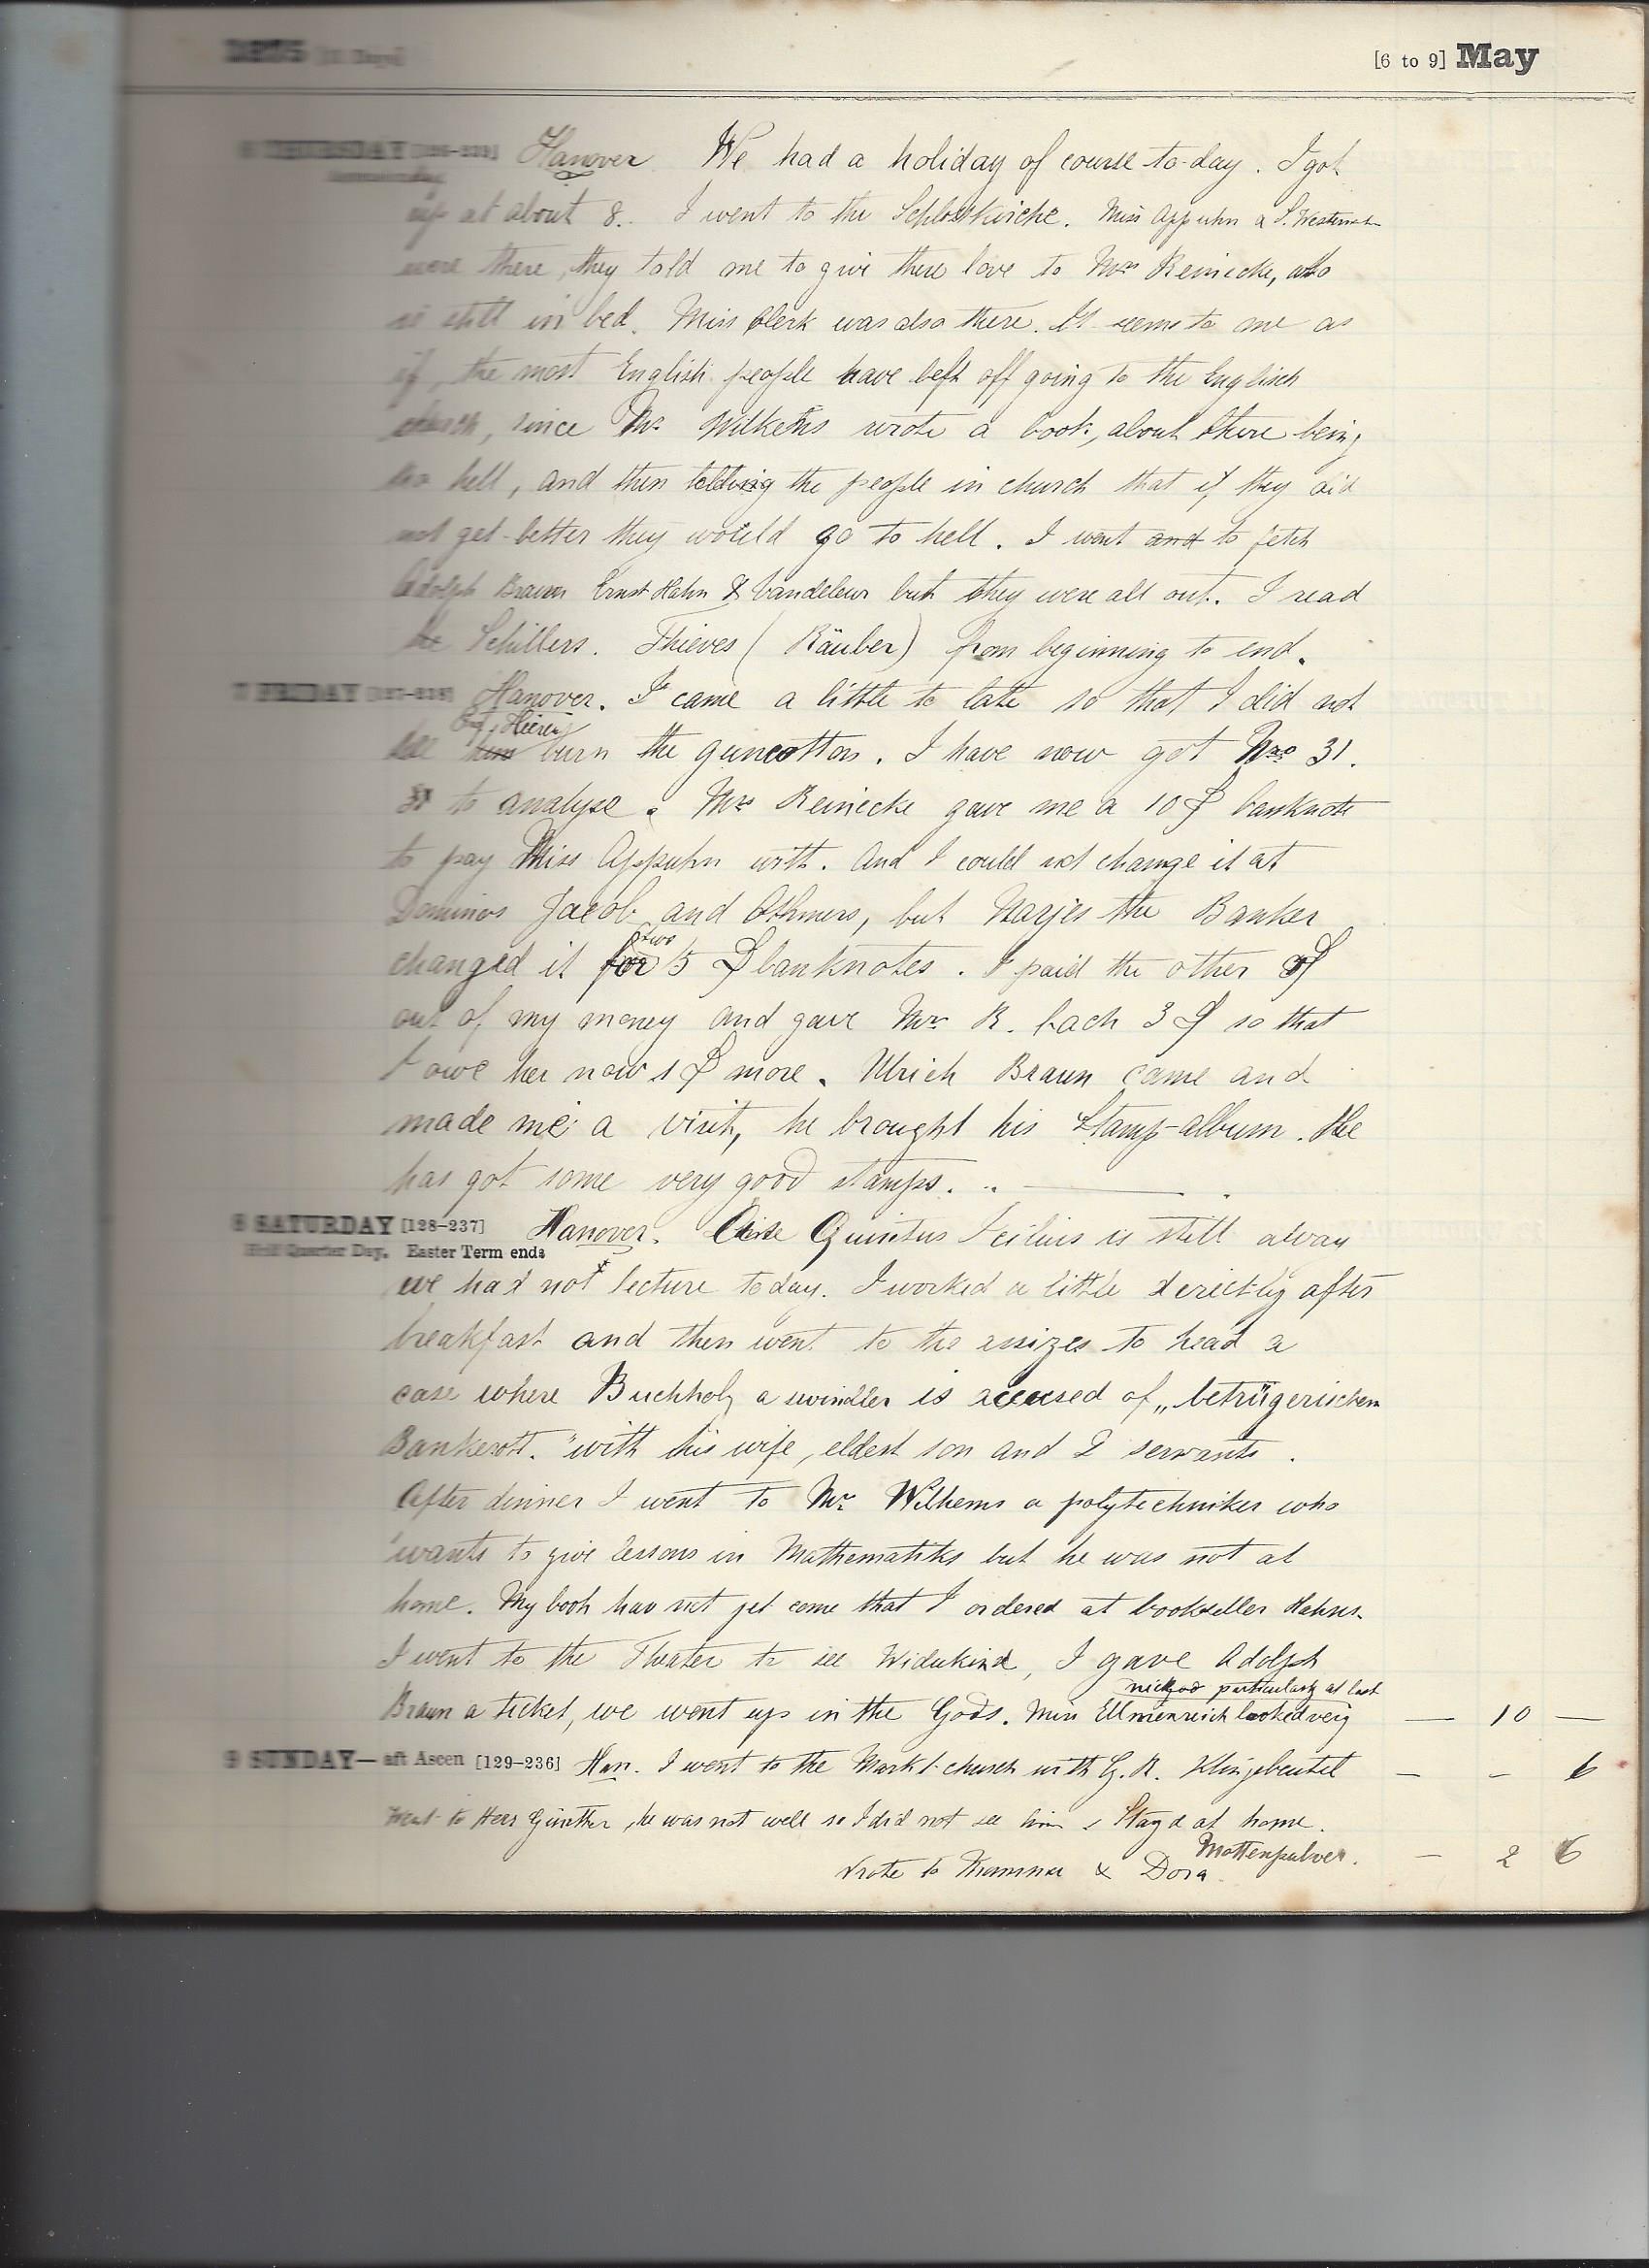 1875 [31 Days] [6 to 9] May
6 THURSDAY Hanover We had a holiday of course to-day. I got
up at about 8.. I went to the Schlosskirche. Miss Appuhn &
were there, they told me to give there love to Mrs Reinecke, who
is still in bed. Miss Clerk was also there. It seems to me as
if, the most English people have left off going to the English
church, since Mr. Wilkens wrote a book, about there being
no hell, and then telling the people in church that if they did
not get better they would go to hell. I went and to fetch
Adolph Braun Ernst Hahn & Vandeleur but they were all out. I read
Schillers. Thieves (Räuber) from beginning to end.
7 FRIDAY Hanover. I came a little to late so that I did not
see burn the guncotton. I have now got Nro 31.
to analyse. Mrs Reinecke gave me a 10 banknote
to pay Miss Appuhn with. And I could not change it at
Dominos Jacob and Othmers, but Narjes the Banker
changed it for two 5 banknotes. I paid the other
out of my money and gave Mrs R. back 3 so that
I owe her now 1 more. Ulrich Braun came and
made me a visit, he brought his Stamp-album. He
has got some very good stamps.
8 SATURDAY [128-237] Hanover. Quintus Icilius is still away
Half Quarter Day. Easter Term ends
we had not lecture to day. I worked a little directly after
breakfast and then went to the assizes to head a
case where Buchholz a swindler is accused of „betrügerischen
Bankerott." with his wife, eldest son and 2 servants.
After dinner I went to Mr. Wilhems a polytechniker who
wants to give lessons in Mathematiks but he was not at
home. My book hav not yet come that I ordered at bookseller Hahns.
I went to the Theater to see Widukind, I gave Adolph
particularly at last
Braun a ticket, we went up in the Gods. Miss Ellmenreich looked very — 10 —
9 SUNDAY— aft Ascen [129-236] Han. I went to the Markt-church with G. R. Klingebeutel — - 6
Went to Herr Günther, he was not well so I did not see him & Stayd at home.
Mottenpulver. — 2 6
Wrote to Mamma & Dora